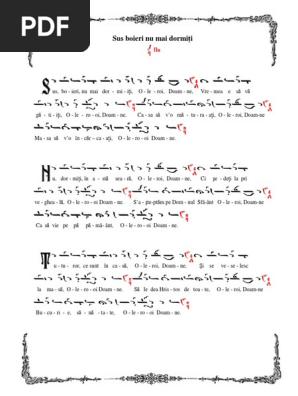 PDF
Sus boieri nu mai dormiți
Πα
Sus, bo - ieri, nu mai dor - mi - ți, O - le - roi. Doam - ne. Vre - mea e să vă
gă - ti - ți, O - le - ro - oi Doam - ne. Ca - sa să v'o mă - tu - ra - ți. O - le - roi, Doam-ne
Ma - sa să v'o în - căr - ca - ți, O - le - ro - oi Doam - ne.
Nu dor - miți, în a - stă sea - ră, O - le - roi. Doam - ne, Ci pe - deți la pri
ve - ghea - lă, O - le - ro - oi Doam - ne. O - le - roi, Doam-ne
Că vie pe pă - mă - ânt, O - le - roi Doam - ne.
Tu - tu - ror, ce sunt în ca - să, O - le - roi. Doam - ne, Și se ve - se - lesc
la ma - să, O - le - ro - oi Doam - ne. Să le dea Hris - tos de toa - te, O - le - roi, Doam-ne
Bu - cu - ri - e, să - nă - ta - te, O - le - ro - oi Doam - ne.